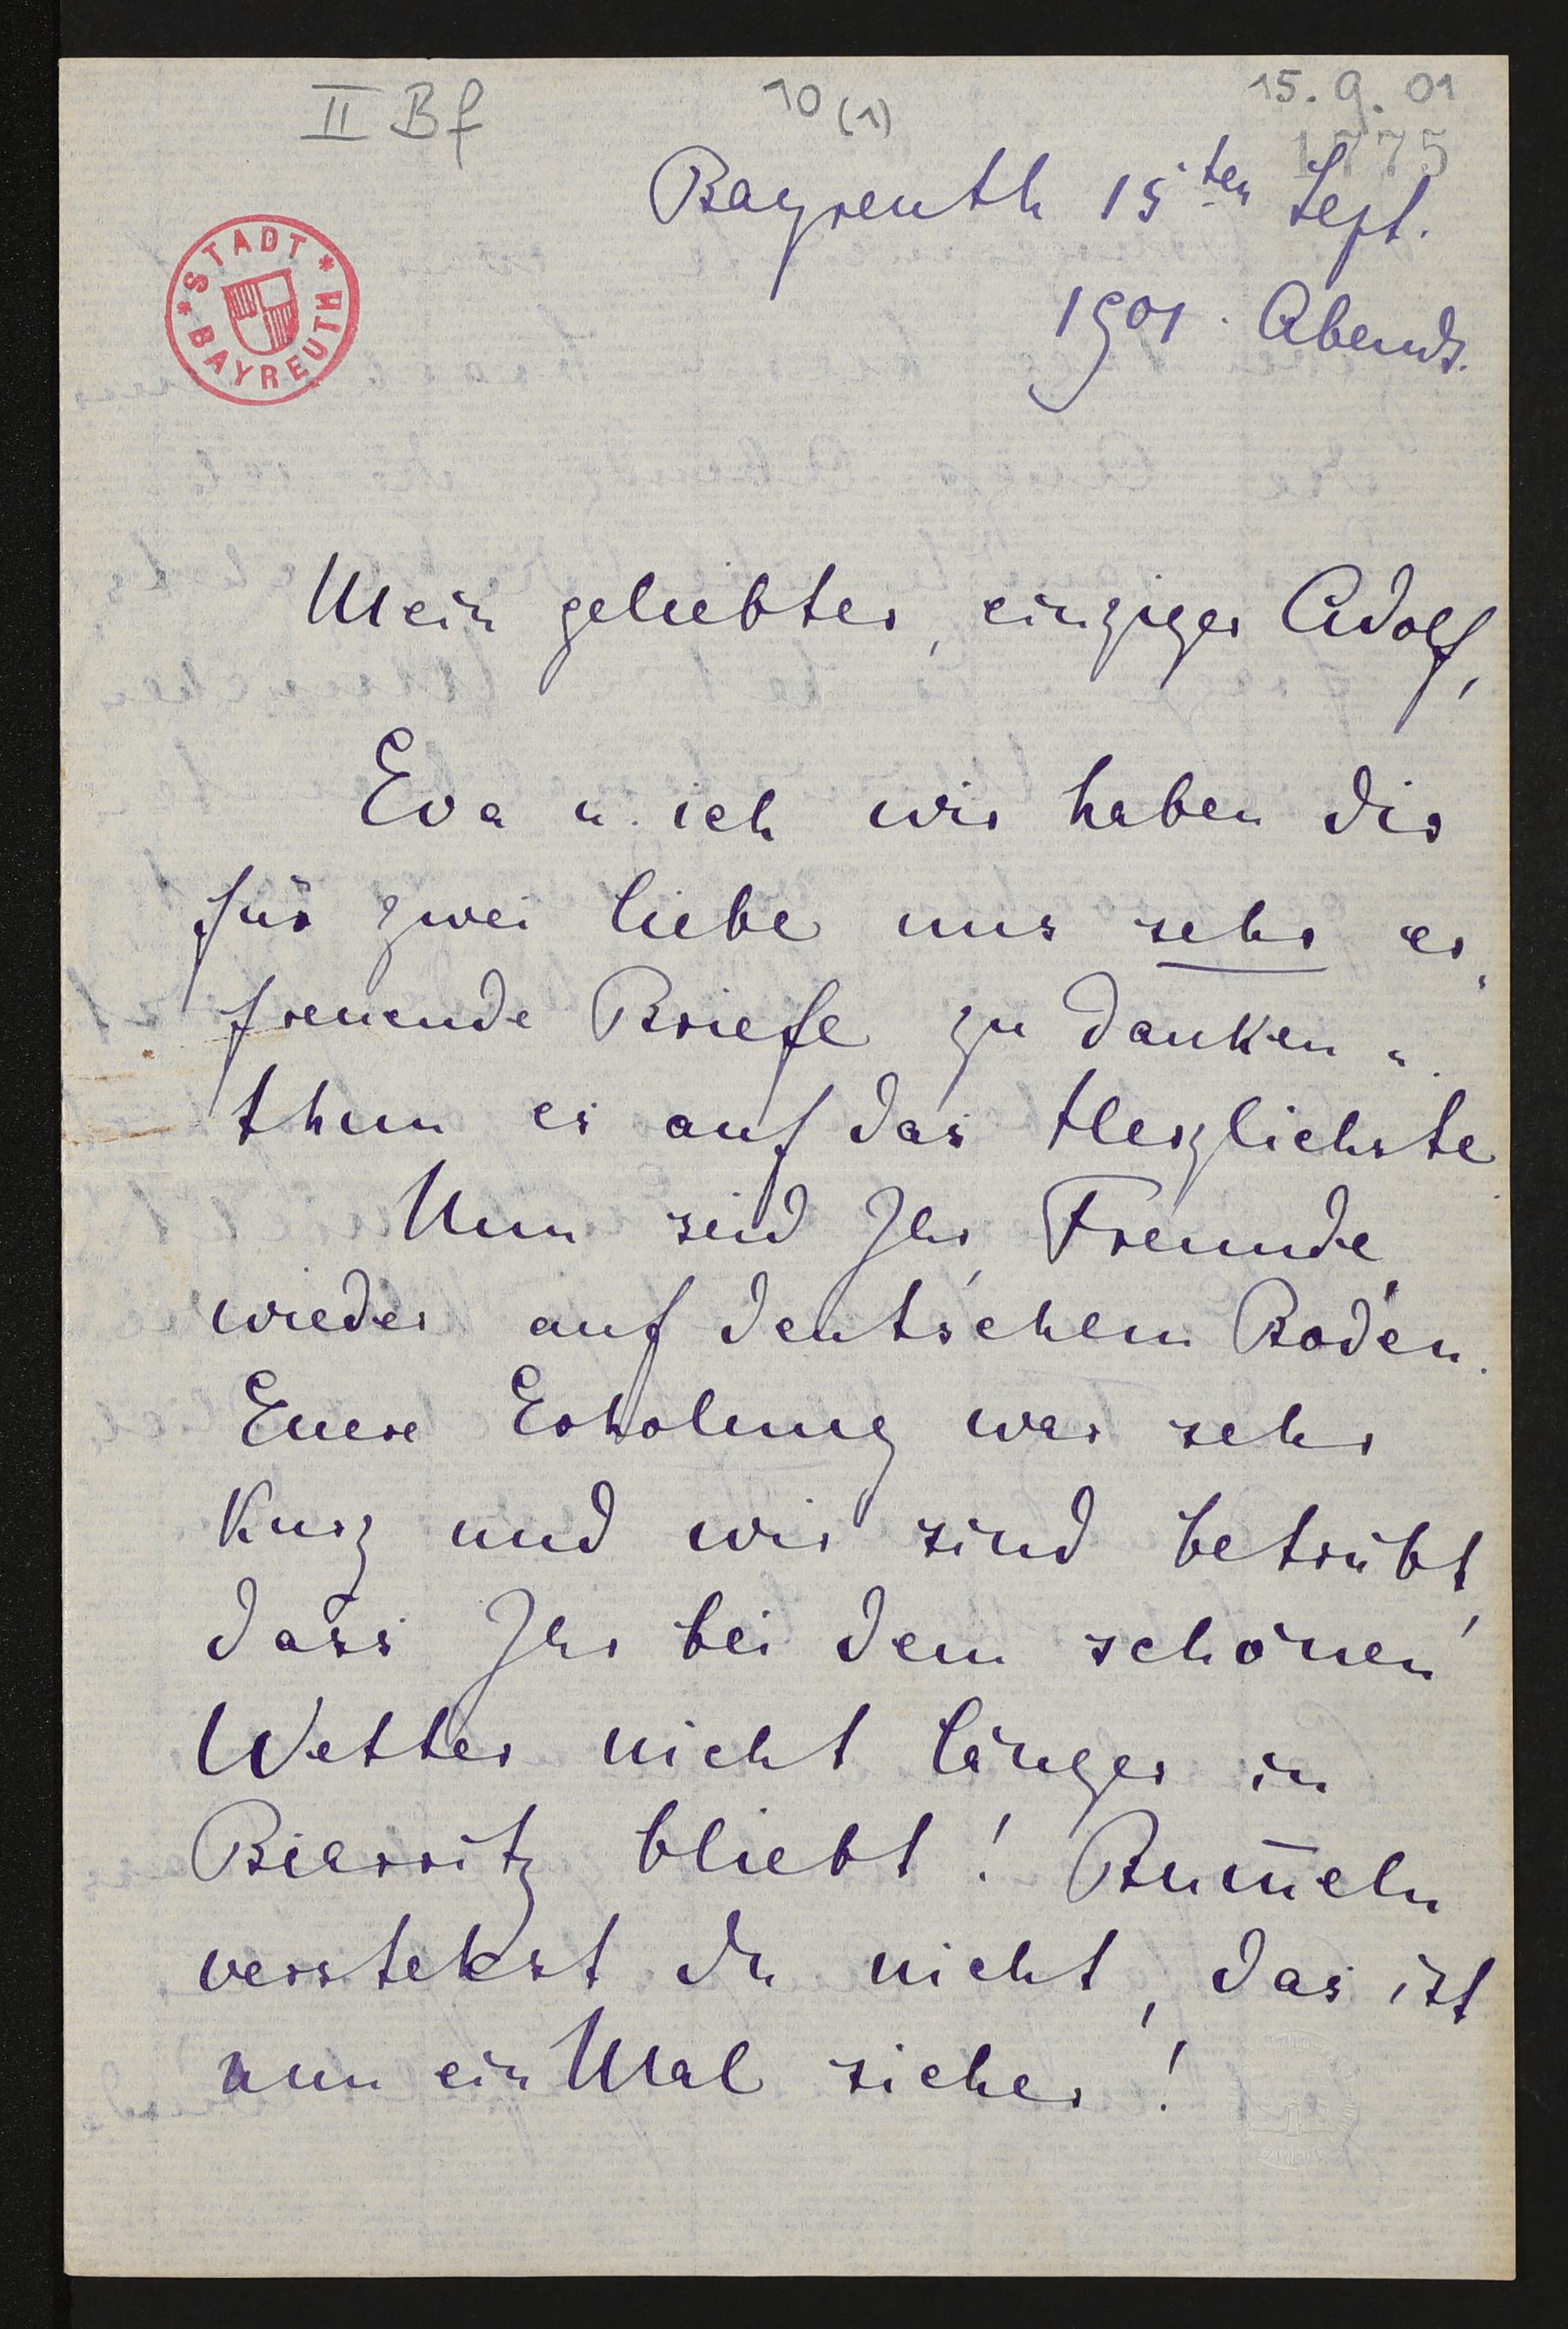 II Bf 10 (1) 15. 9. 01
1775
Bayreuth 15ten Sept.
1901. Abends.
* STADT *
BAYREUTH
Mein geliebter, einziger Adolf,
Eva u. ich wir haben dir
für zwei liebe uns sehr er,
freuende Briefe zu danken u.
thun es auf das Herzlichste.
Nun seid Ihr, Freunde,
wieder auf deutschem Boden.
Euere Erholung war sehr
kurz und wir sind betrübt,
dass Ihr bei dem schönen
Wetter nicht länger in
Biarritz bliebt! Bum̅eln
verstehst du nicht, das ist
nun ein Mal sicher!